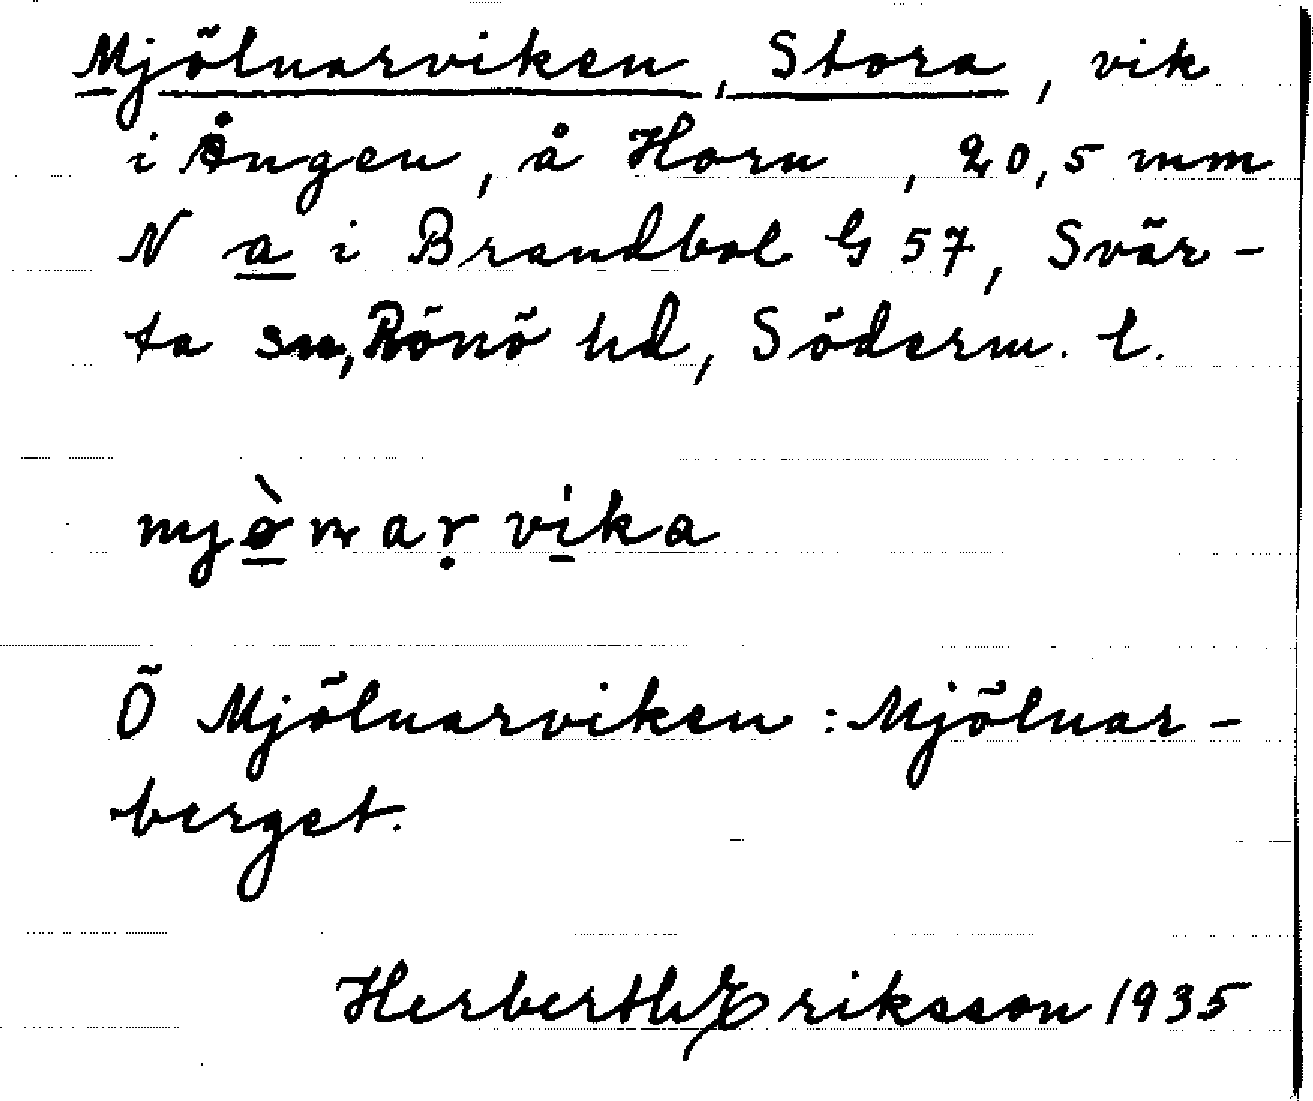 Mjölnarviken, Stora, vik
i Ången, å Horn, 20,5 mm
N a i Brandbol G 57, Svär-
ta sn, Rönö hd, Söderm. l.
mjònaṛ vika
Ö Mjölnarviken : Mjölnar-
berget.
Herberth Eriksson 1935